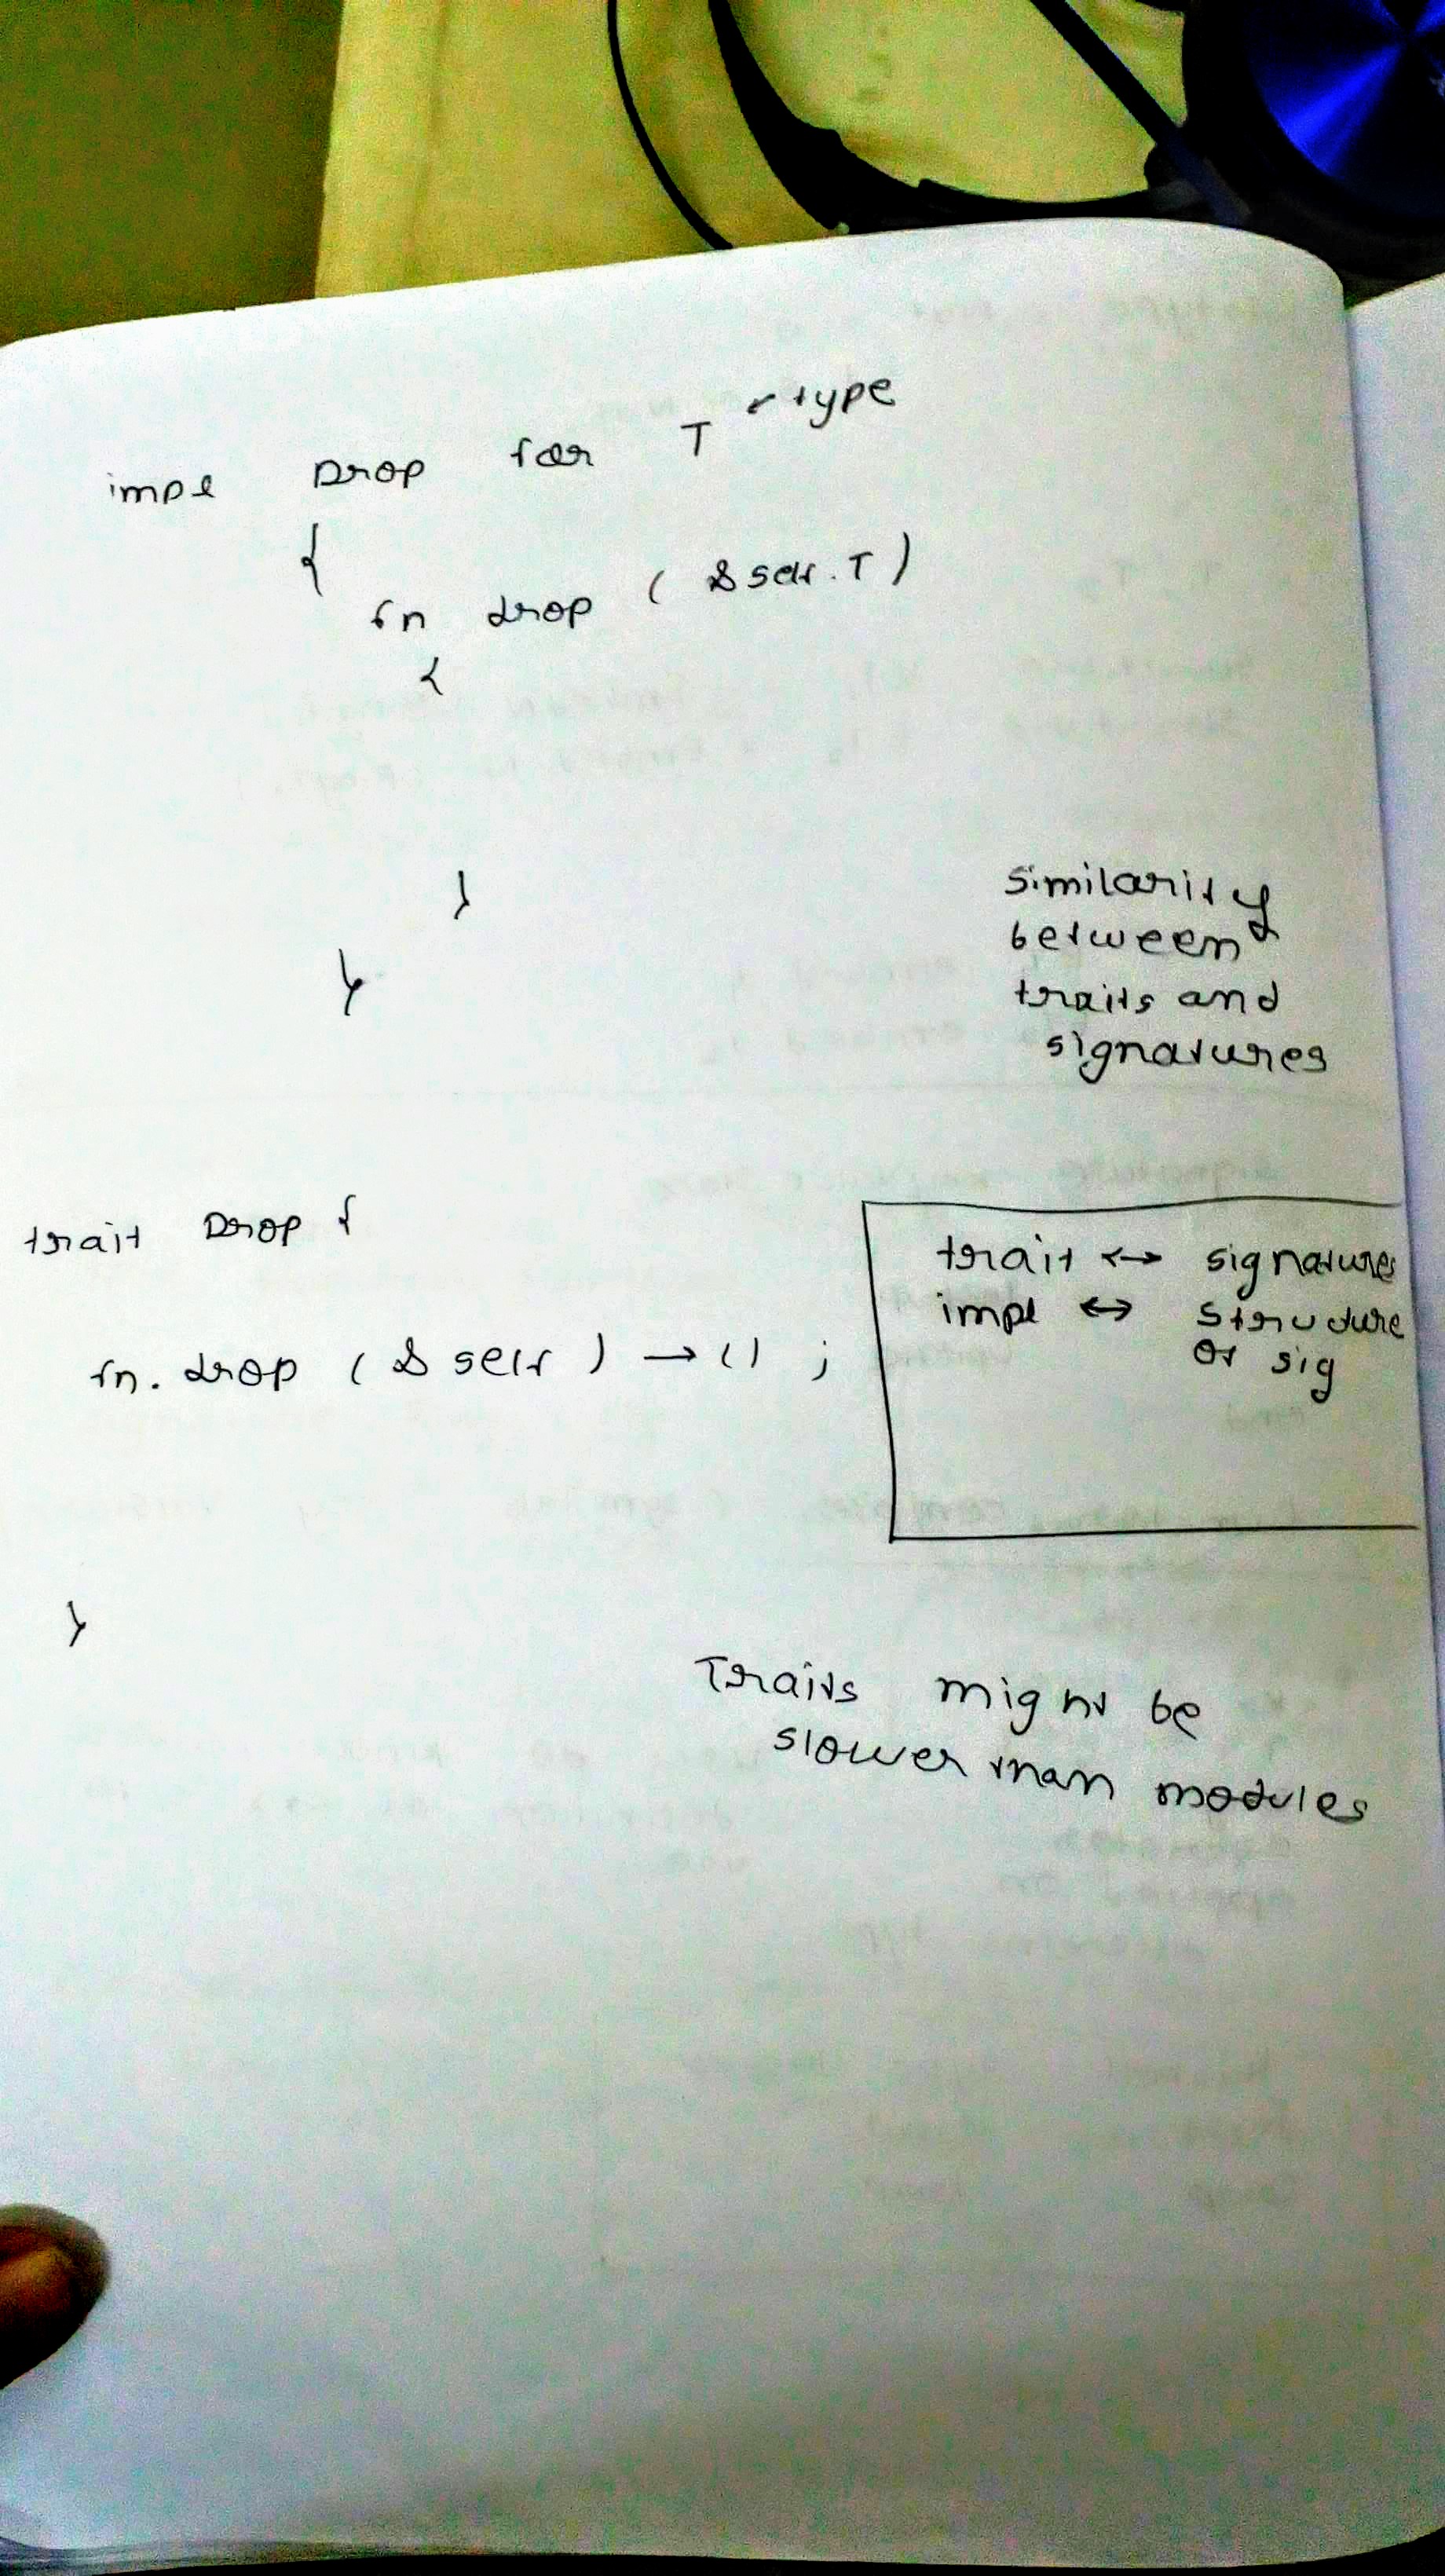 impl Drop for T ← type
{
fn drop ( & self. T )
{
}
}
Similarity
between
traits and
signatures
trait Drop {
fn. drop ( & self ) → () ;
}
trait ↔ signatures
impl ↔ structure
or sig
Traits might be
slower than modules